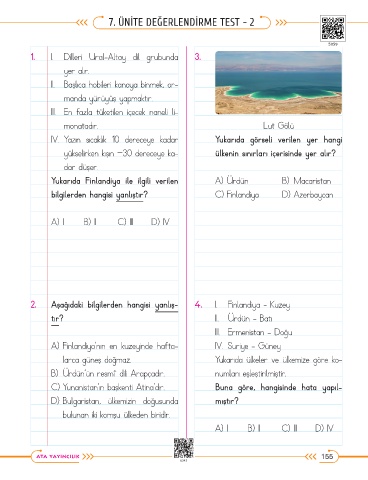 7. ÜNİTE DEĞERLENDİRME TEST - 2
1. I. Dilleri Ural-Altay dil grubunda
yer alır.
II. Başlıca hobileri kanoya binmek, or-
manda yürüyüş yapmaktır.
III. En fazla tüketilen içecek naneli li-
monatadır.
IV. Yazın sıcaklık 10 dereceye kadar
yükselirken kışın -30 dereceye ka-
dar düşer.
Yukarıda Finlandiya ile ilgili verilen
bilgilerden hangisi yanlıştır?
A) I B) II C) III D) IV
2. Aşağıdaki bilgilerden hangisi yanlış-
tır?
A) Finlandiya'nın en kuzeyinde hafta-
larca güneş doğmaz.
B) Ürdün'ün resmî dili Arapçadır.
C) Yunanistan'ın başkenti Atina'dır.
D) Bulgaristan, ülkemizin doğusunda
bulunan iki komşu ülkeden biridir.
3.
Lut Gölü
Yukarıda görseli verilen yer hangi
ülkenin sınırları içerisinde yer alır?
A) Ürdün B) Macaristan
C) Finlandiya D) Azerbaycan
4. I. Finlandiya - Kuzey
II. Ürdün - Batı
III. Ermenistan - Doğu
IV. Suriye - Güney
Yukarıda ülkeler ve ülkemize göre ko-
numları eşleştirilmiştir.
Buna göre, hangisinde hata yapıl-
mıştır?
A) I B) II C) III D) IV
ATA YAYINCILIK
155